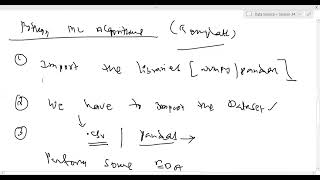 Data Science - Session 34
ML Algorithms (Template)
① Import the libraries [numpy/pandas]
② We have to import the Dataset
③ .csv | pandas →
Perform some EDA